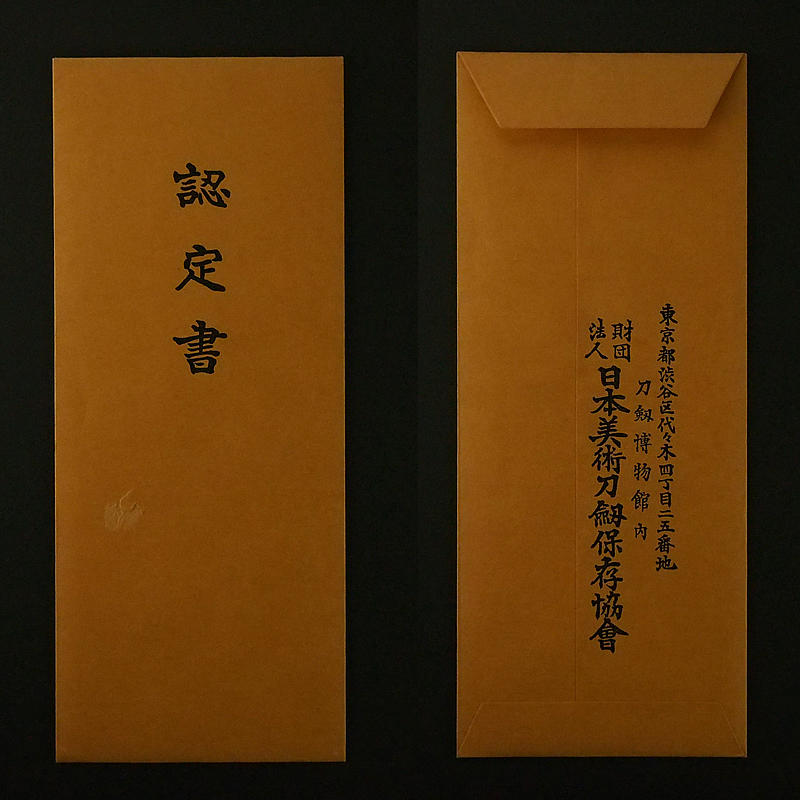 認定書
東京都渋谷区代々木四丁目二五番地
刀劔博物館内
財団法人
日本美術刀劔保存協會